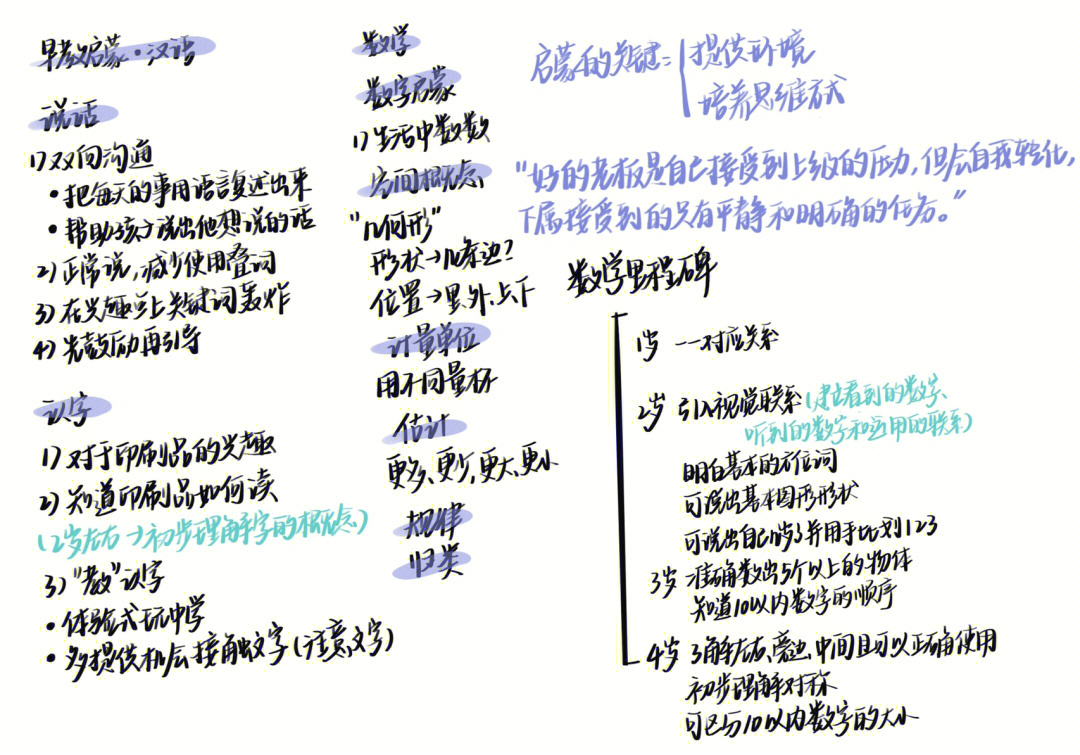 早教启蒙·汉语
说话
1) 双向沟通
• 把每天的事用语言复述出来
• 帮助孩子说出他想说的话
2) 正常说,减少使用叠词
3) 在兴趣点上关键词轰炸
4) 先鼓励再引导
识字
1) 对于印刷品的兴趣
2) 知道印刷品如何读
(2岁左右→初步理解字的概念)
3) "教"识字
• 体验式玩中学
• 多提供机会接触文字(注意文字)
数学
数字启蒙
1) 生活中数数
空间概念
"几何形"
形状→几条边?
位置→里、外、上、下
计量单位
用不同量杯
估计
更多、更少,更大、更小
规律
归类
启蒙的关键=
提供环境
培养思维方式
"好的老板是自己接受到上级的压力,但会自我转化,
下属接受到的只有平静和明确的任务。"
数学里程碑
1岁 一一对应关系
2岁 引入视觉联系(建立看到的数字、
听到的数字和运用的联系)
明白基本的方位词
可说出基本图形形状
可说出自己几岁了并用手比划123
3岁 准确数出5个以上的物体
知道10以内数字的顺序
4岁 了解左右、旁边、中间且可以正确使用
初步理解对称
可区分10以内数字的大小